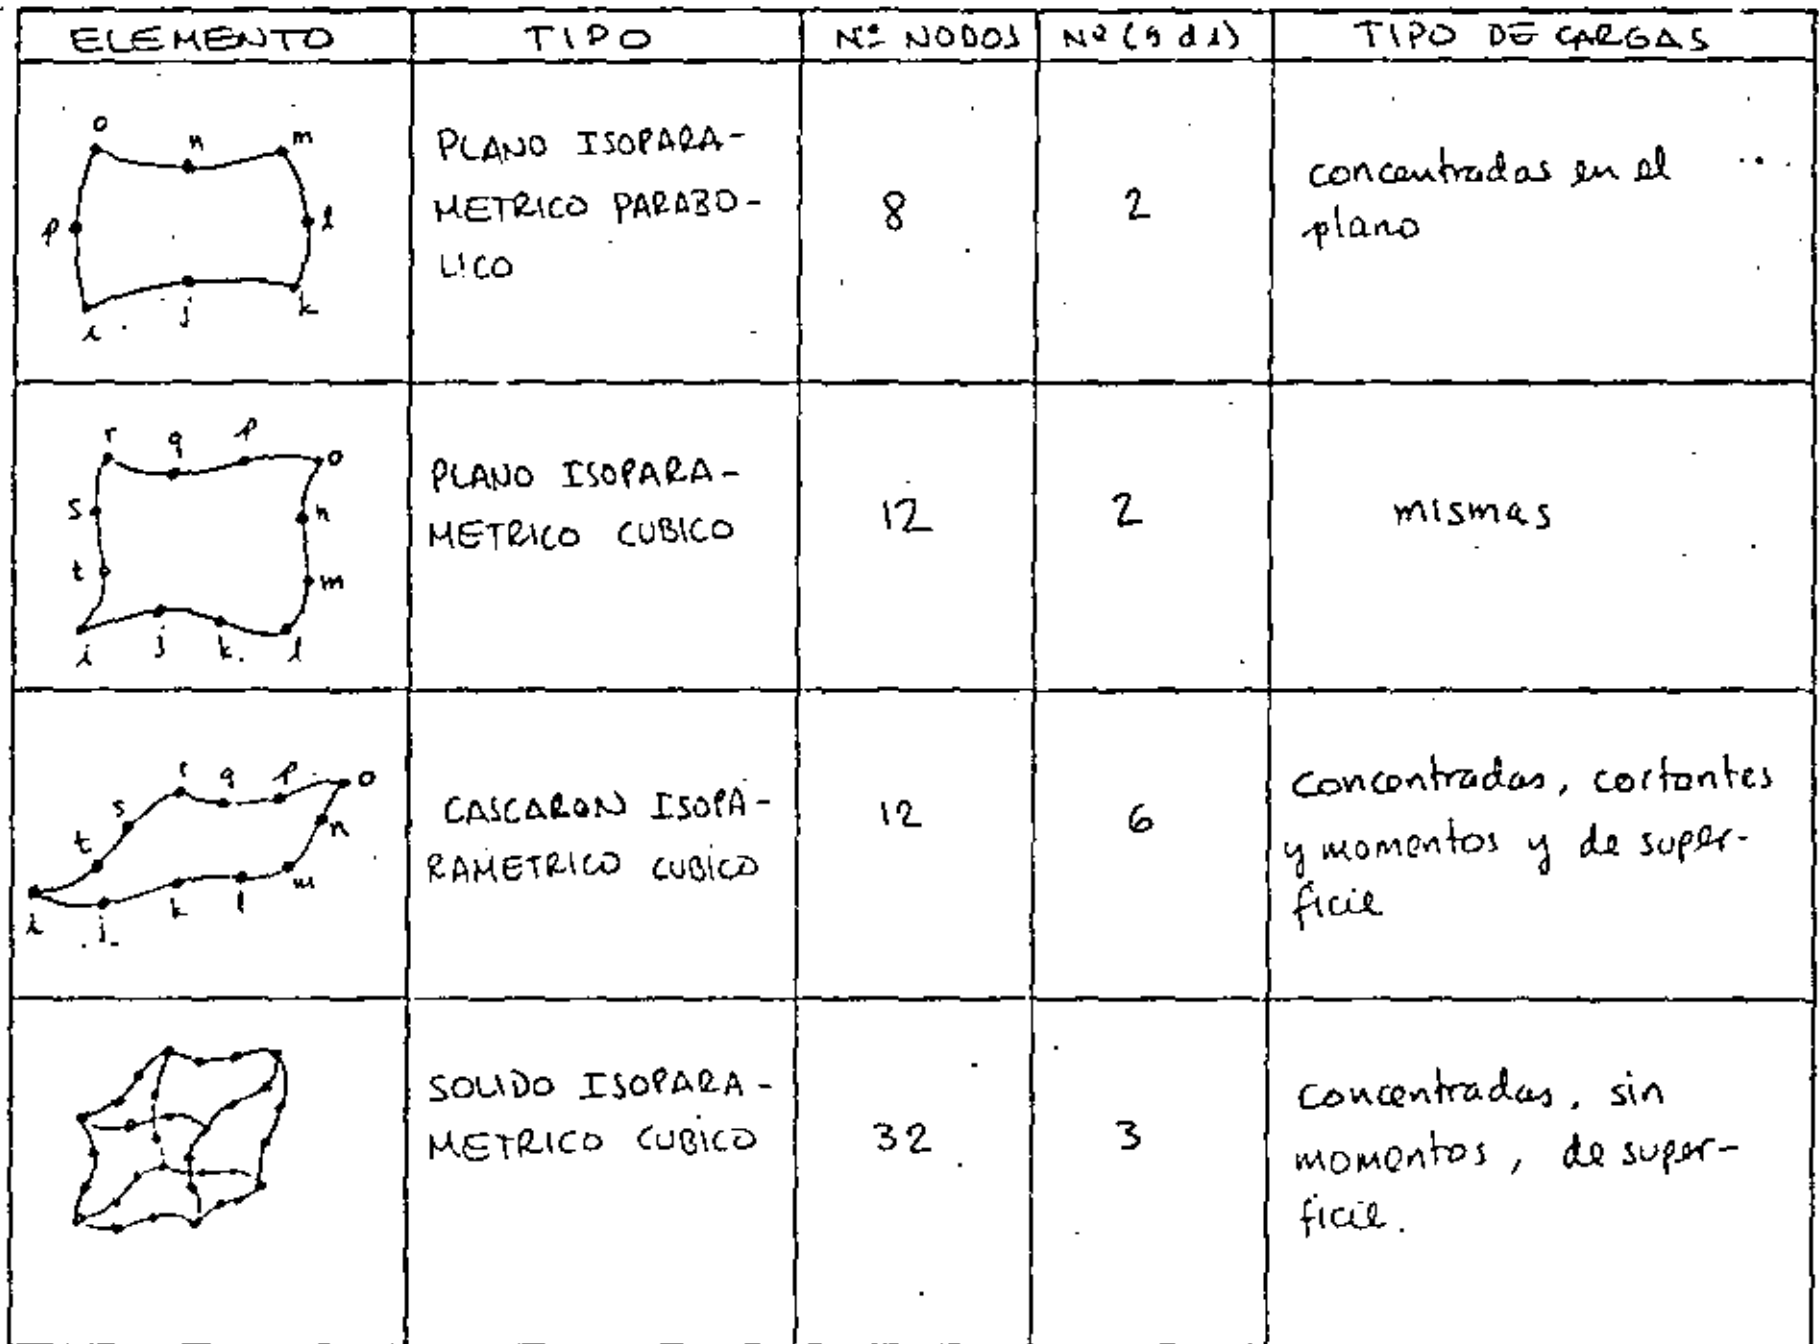 ELEMENTO TIPO Nº NODOS Nº (g d l) TIPO DE CARGAS
o n m
p l
i j k
PLANO ISOPARA-
METRICO PARABO-
LICO
8
2
concentradas en el
plano
r q p o
s n
t m
i j k l
PLANO ISOPARA-
METRICO CUBICO
12
2
mismas
r q p o
s n
t
i j k l m
CASCARON ISOPA-
RAMETRICO CUBICO
12
6
concentradas, cortantes
y momentos y de super-
ficie
SOLIDO ISOPARA-
METRICO CUBICO
32
3
concentradas, sin
momentos, de super-
ficie.